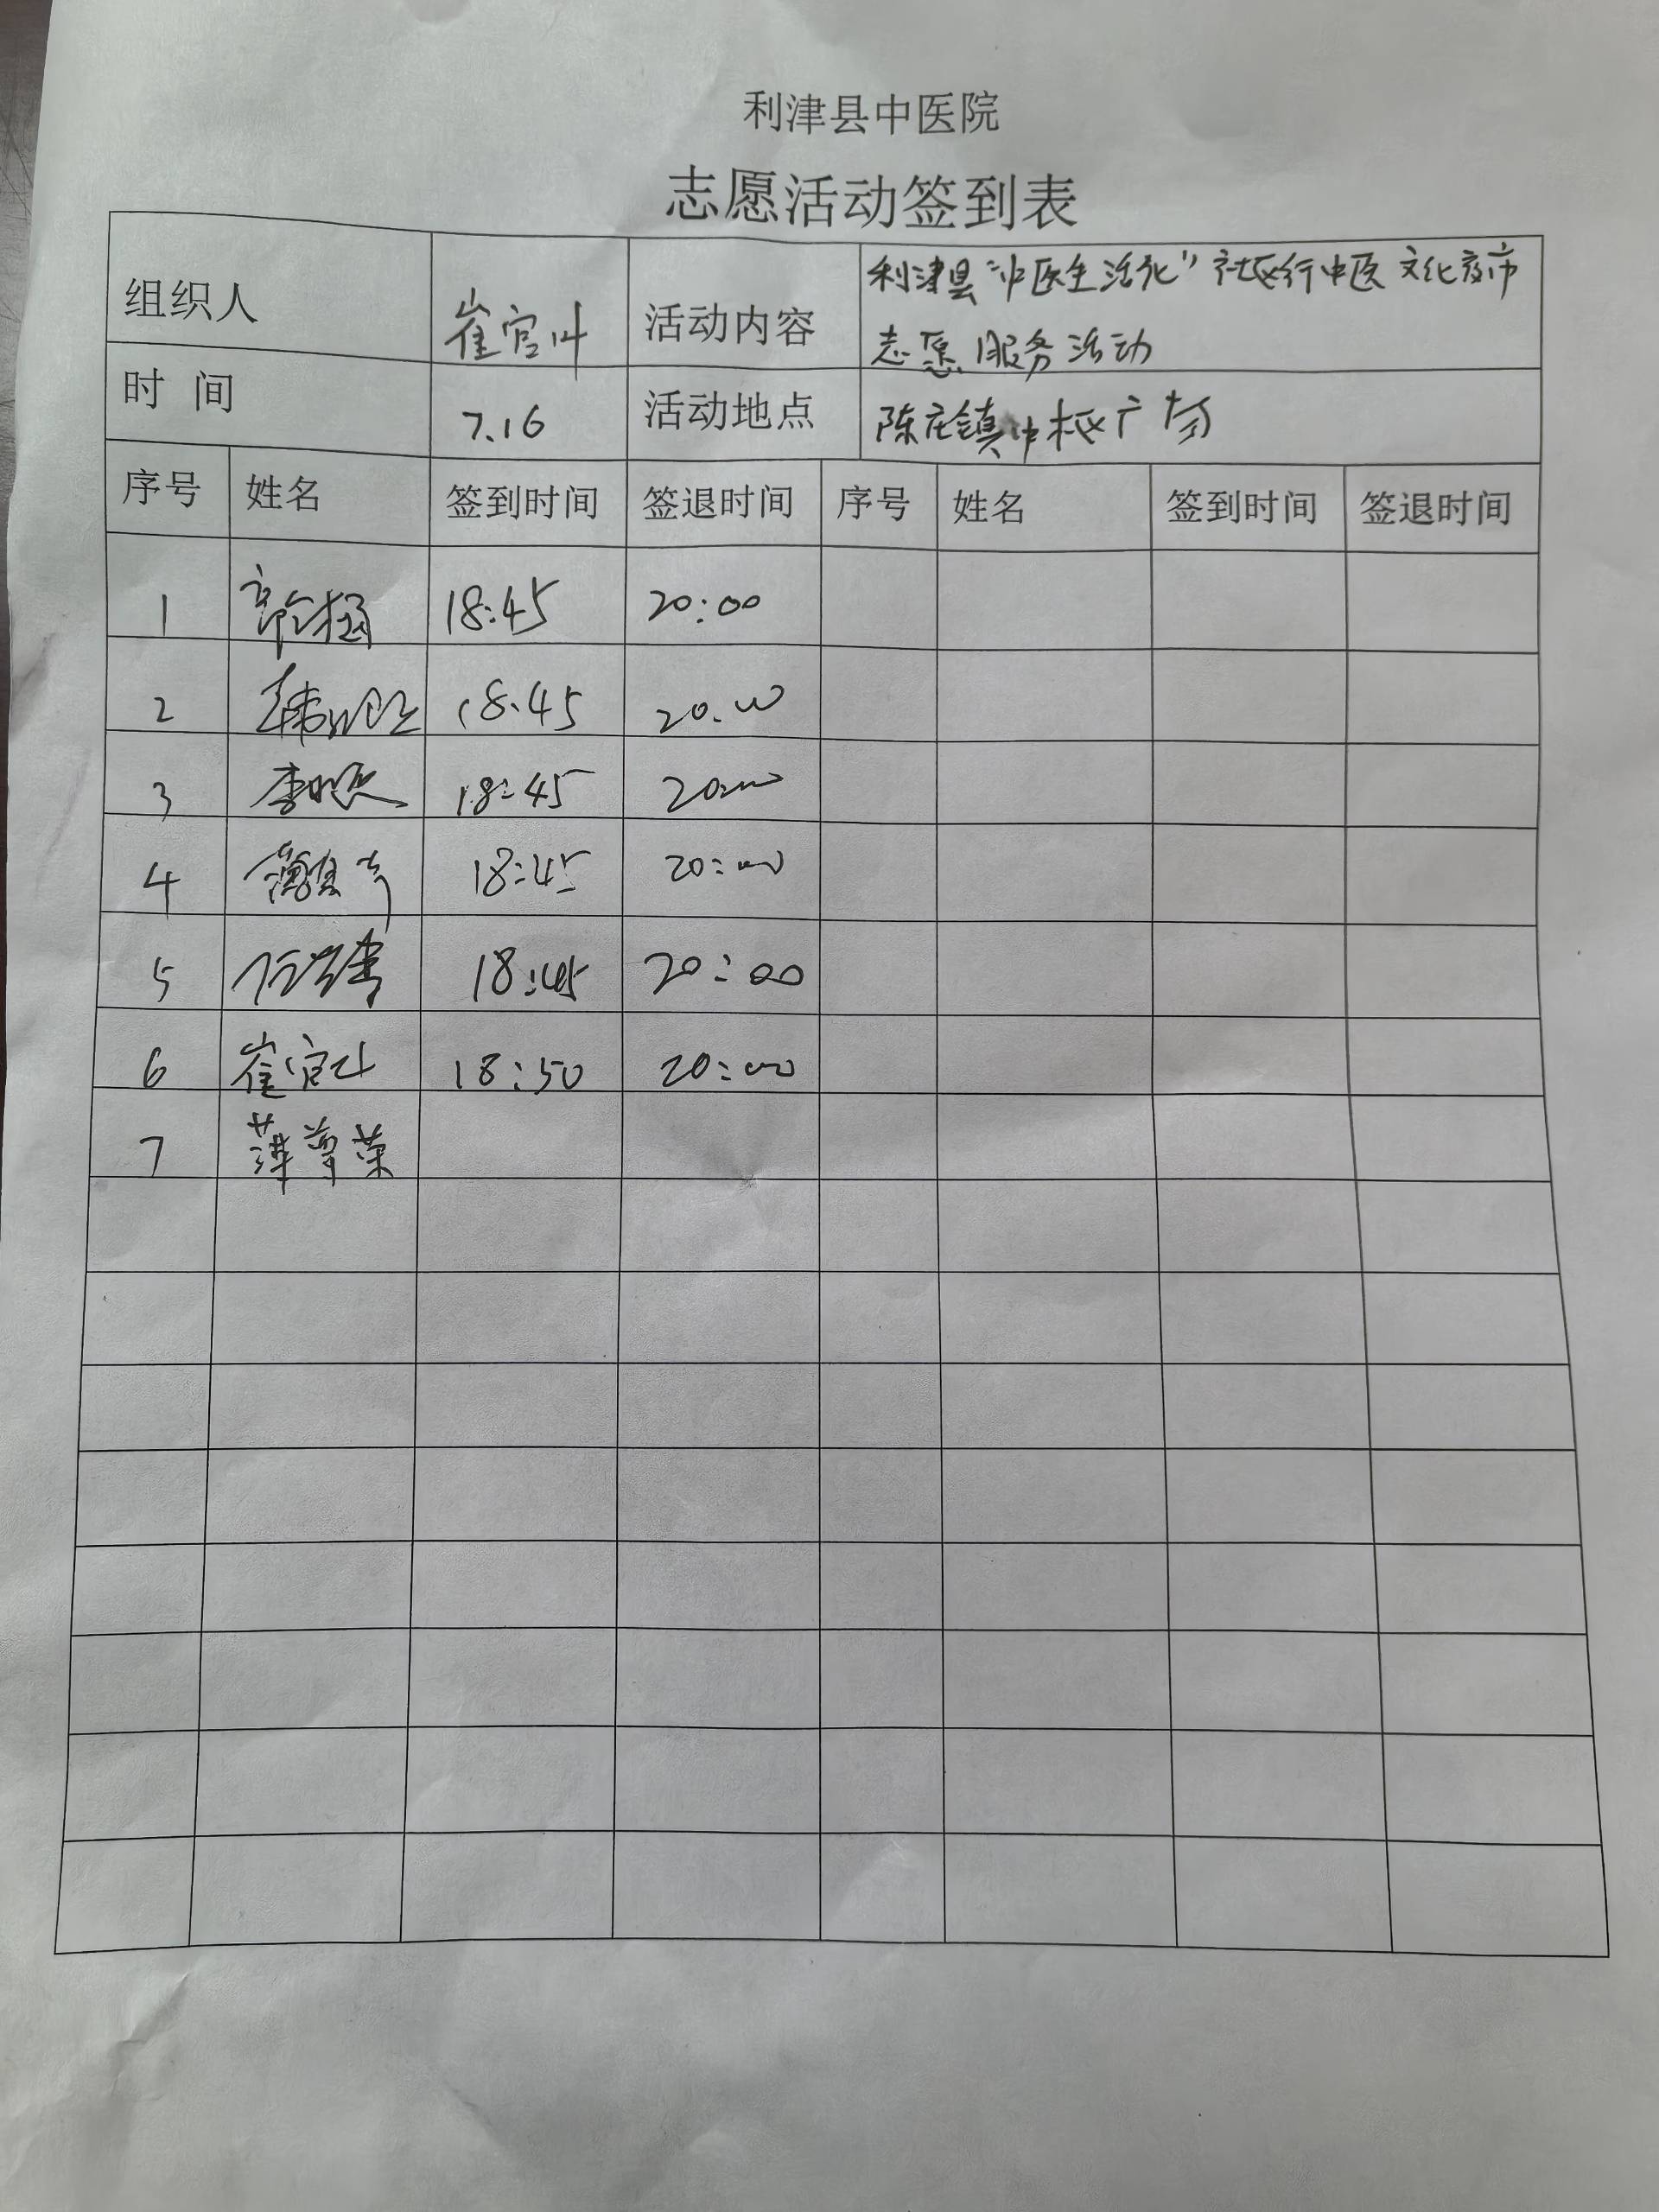 利津县中医院
志愿活动签到表
组织人 崔官叶 活动内容 利津县“中医生活化”社区行中医文化夜市
志愿服务活动
时 间 7.16 活动地点 陈庄镇中心广场
序号 姓名 签到时间 签退时间 序号 姓名 签到时间 签退时间
1 18:45 20:00
2 18:45 20:00
3 18:45 20:00
4 18:45 20:00
5 18:45 20:00
6 崔官叶 18:50 20:00
7 薄尊荣